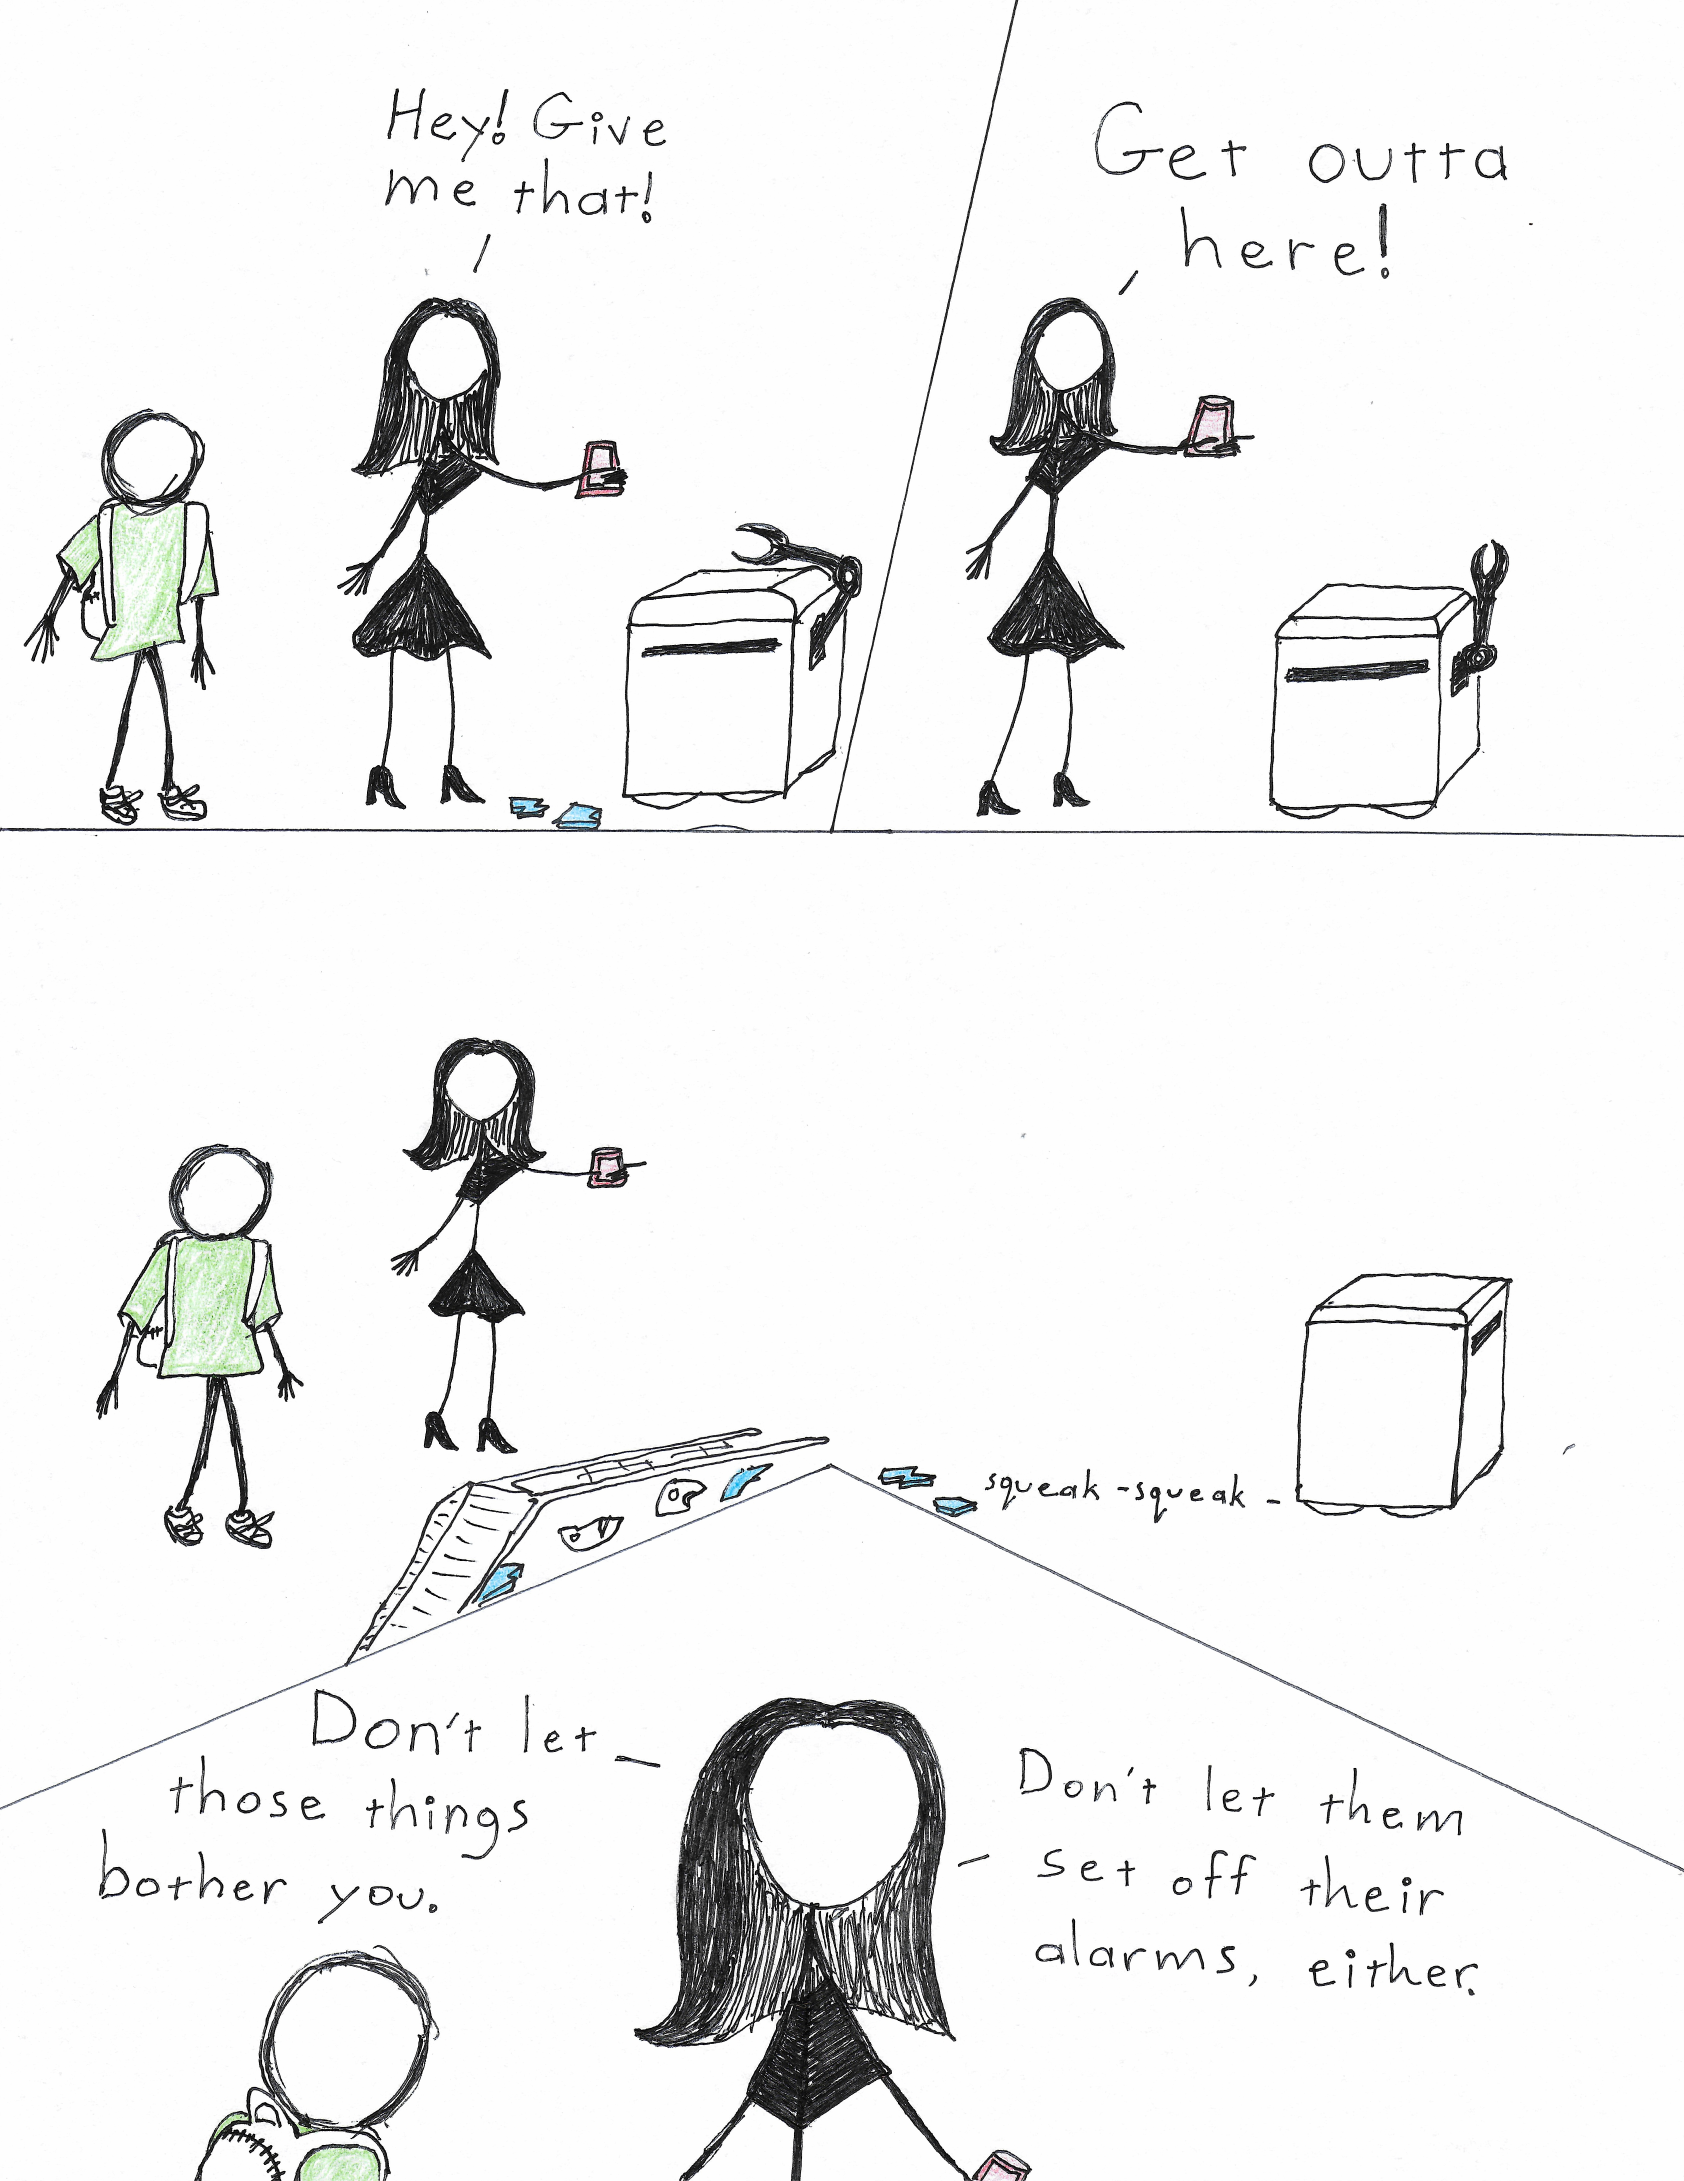 Hey! Give
me that!
Get outta
here!
squeak-squeak
Don't let
those things
bother you.
Don't let them
set off their
alarms, either.